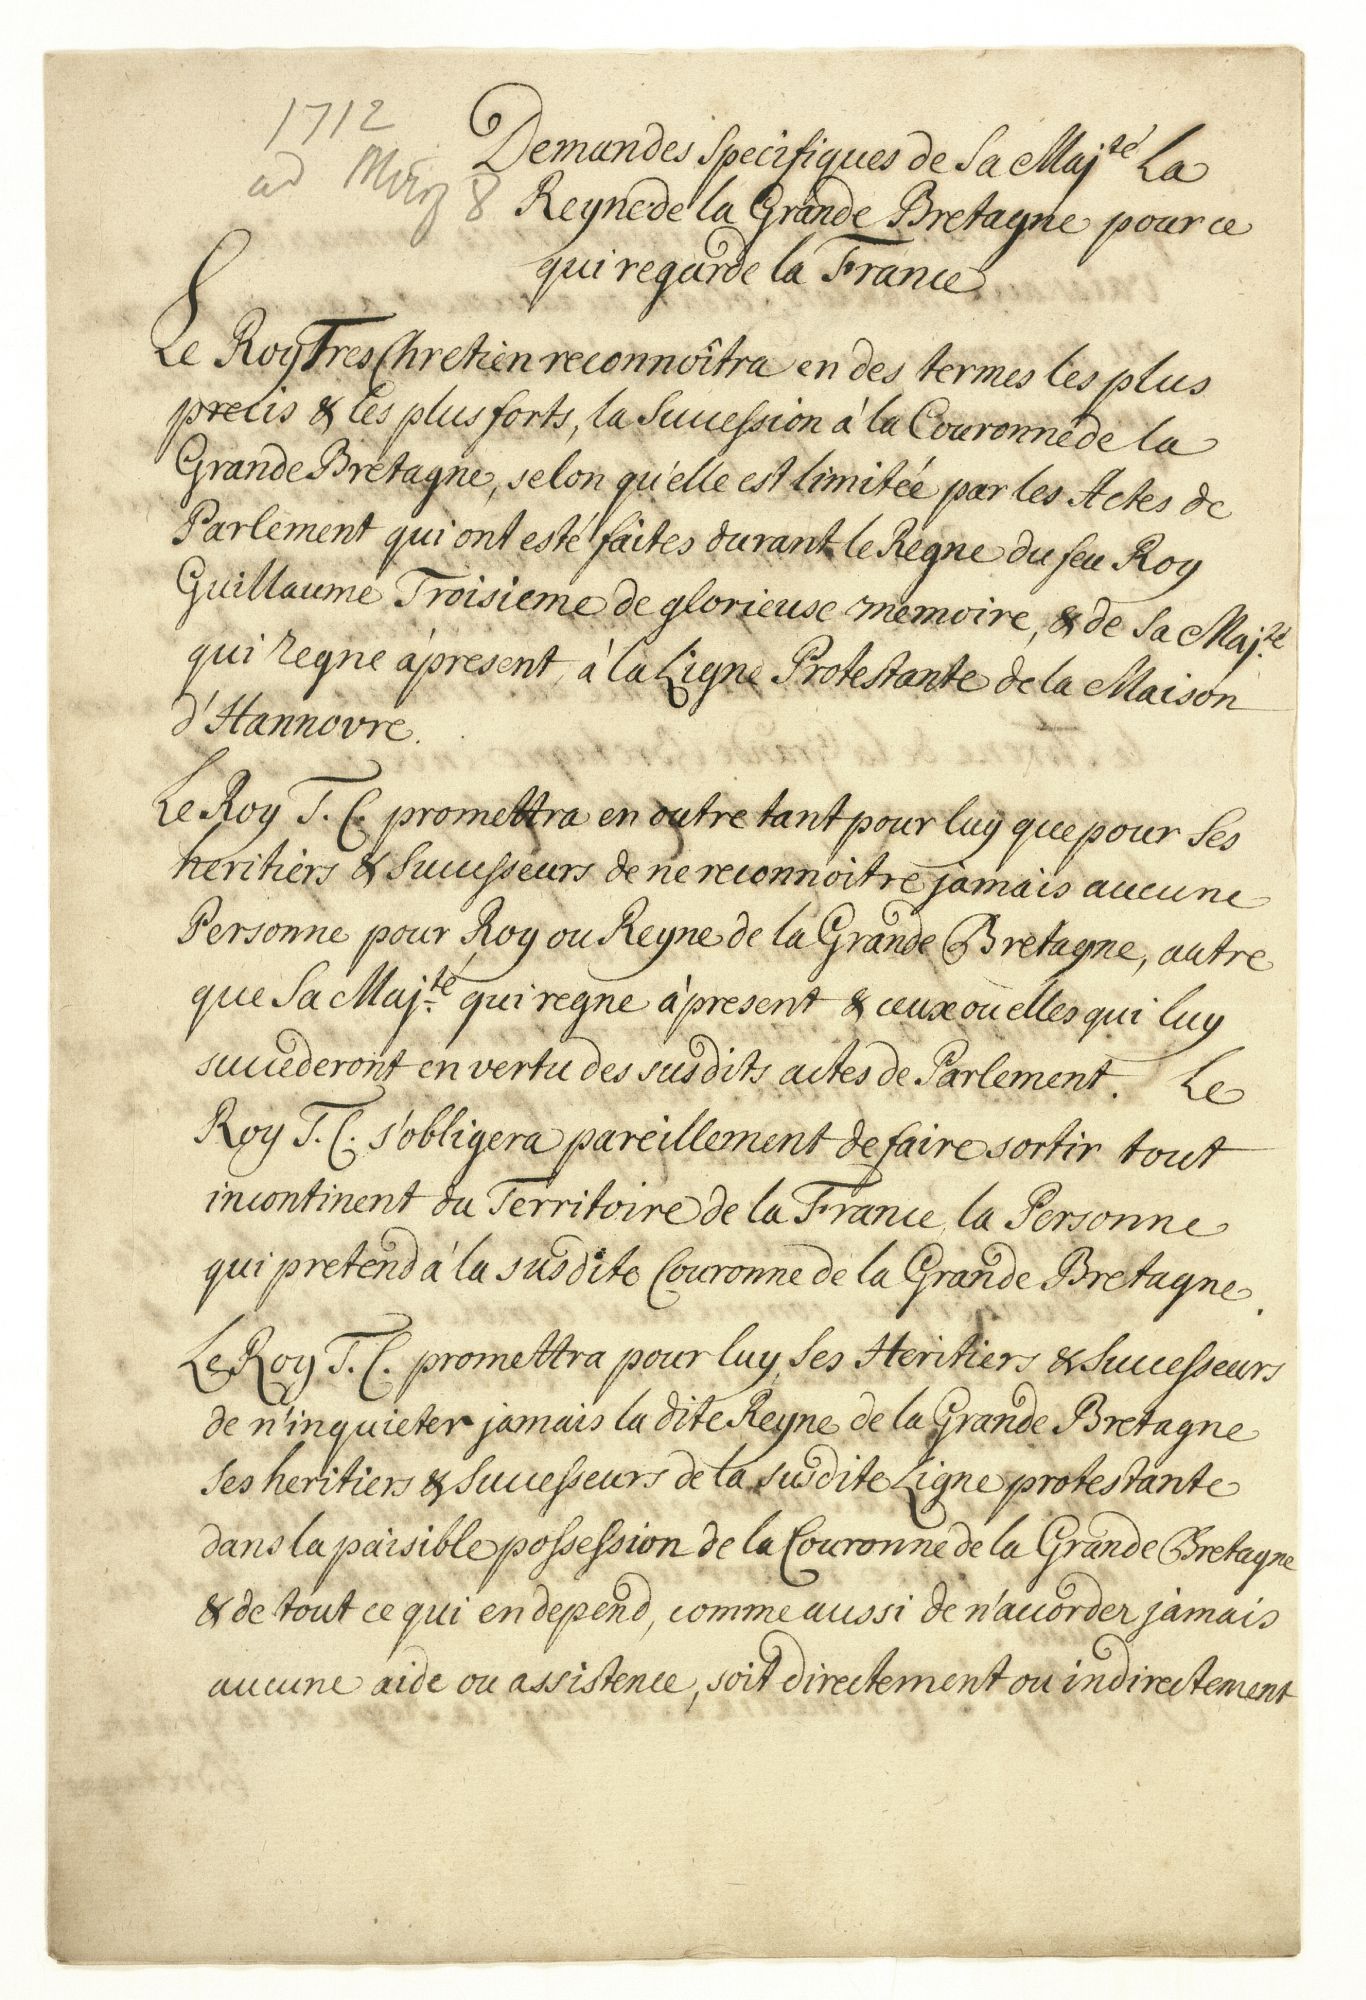 1712
ad März 8
Demandes Specifiques de Sa Maj.té La
Reyne de la Grande Bretagne pour ce
qui regarde la France
Le Roy Tres Chretien reconnoîtra en des termes les plus
precis & les plus forts, la Succession à la Couronne de la
Grande Bretagne, selon qu'elle est limitée par les Actes de
Parlement qui ont esté faites durant le Regne du feu Roy
Guillaume Troisieme de glorieuse memoire, & de Sa Maj.té
qui regne àpresent, à la Ligne Protestante de la Maison
d'Hannovre.
Le Roy T. C. promettra en outre tant pour luy que pour Ses
heritiers & Successeurs de ne reconnoitre jamais aucune
Personne pour Roy ou Reyne de la Grande Bretagne, autre
que Sa Maj.té qui regne àpresent & ceux ou elles qui luy
succederont en vertu des susdits actes de Parlement. Le
Roy T. C. s'obligera pareillement de faire sortir tout
incontinent du Territoire de la France, la Personne
qui pretend à la susdite Couronne de la Grande Bretagne.
Le Roy T. C. promettra pour luy, Ses Heritiers & Successeurs
de n'inquieter jamais la dite Reyne de la Grande Bretagne
Ses heritiers & Successeurs de la susdite Ligne protestante
dans la paisible possession de la Couronne de la Grande Bretagne
& de tout ce qui en depend, comme aussi de n'accorder jamais
aucune aide ou assistence, soit directement ou indirectement